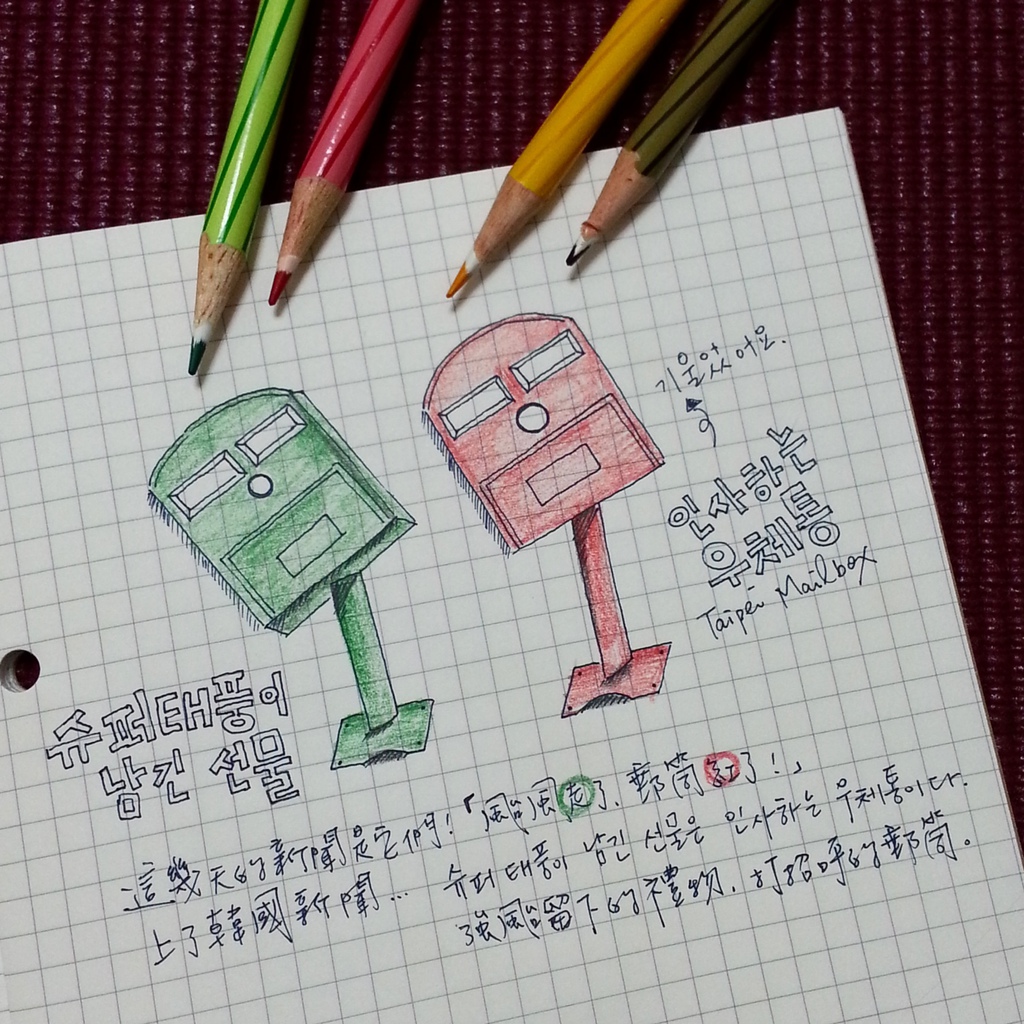 기울었어요.
인사하는
우체통
Taipei Mailbox
슈퍼태풍이
남긴 선물
這幾天的新聞是它們!「颱風走了,郵筒紅了!」
上了韓國新聞... 슈퍼태풍이 남긴 선물은 인사하는 우체통이다.
強颱留下的禮物,打招呼的郵筒。